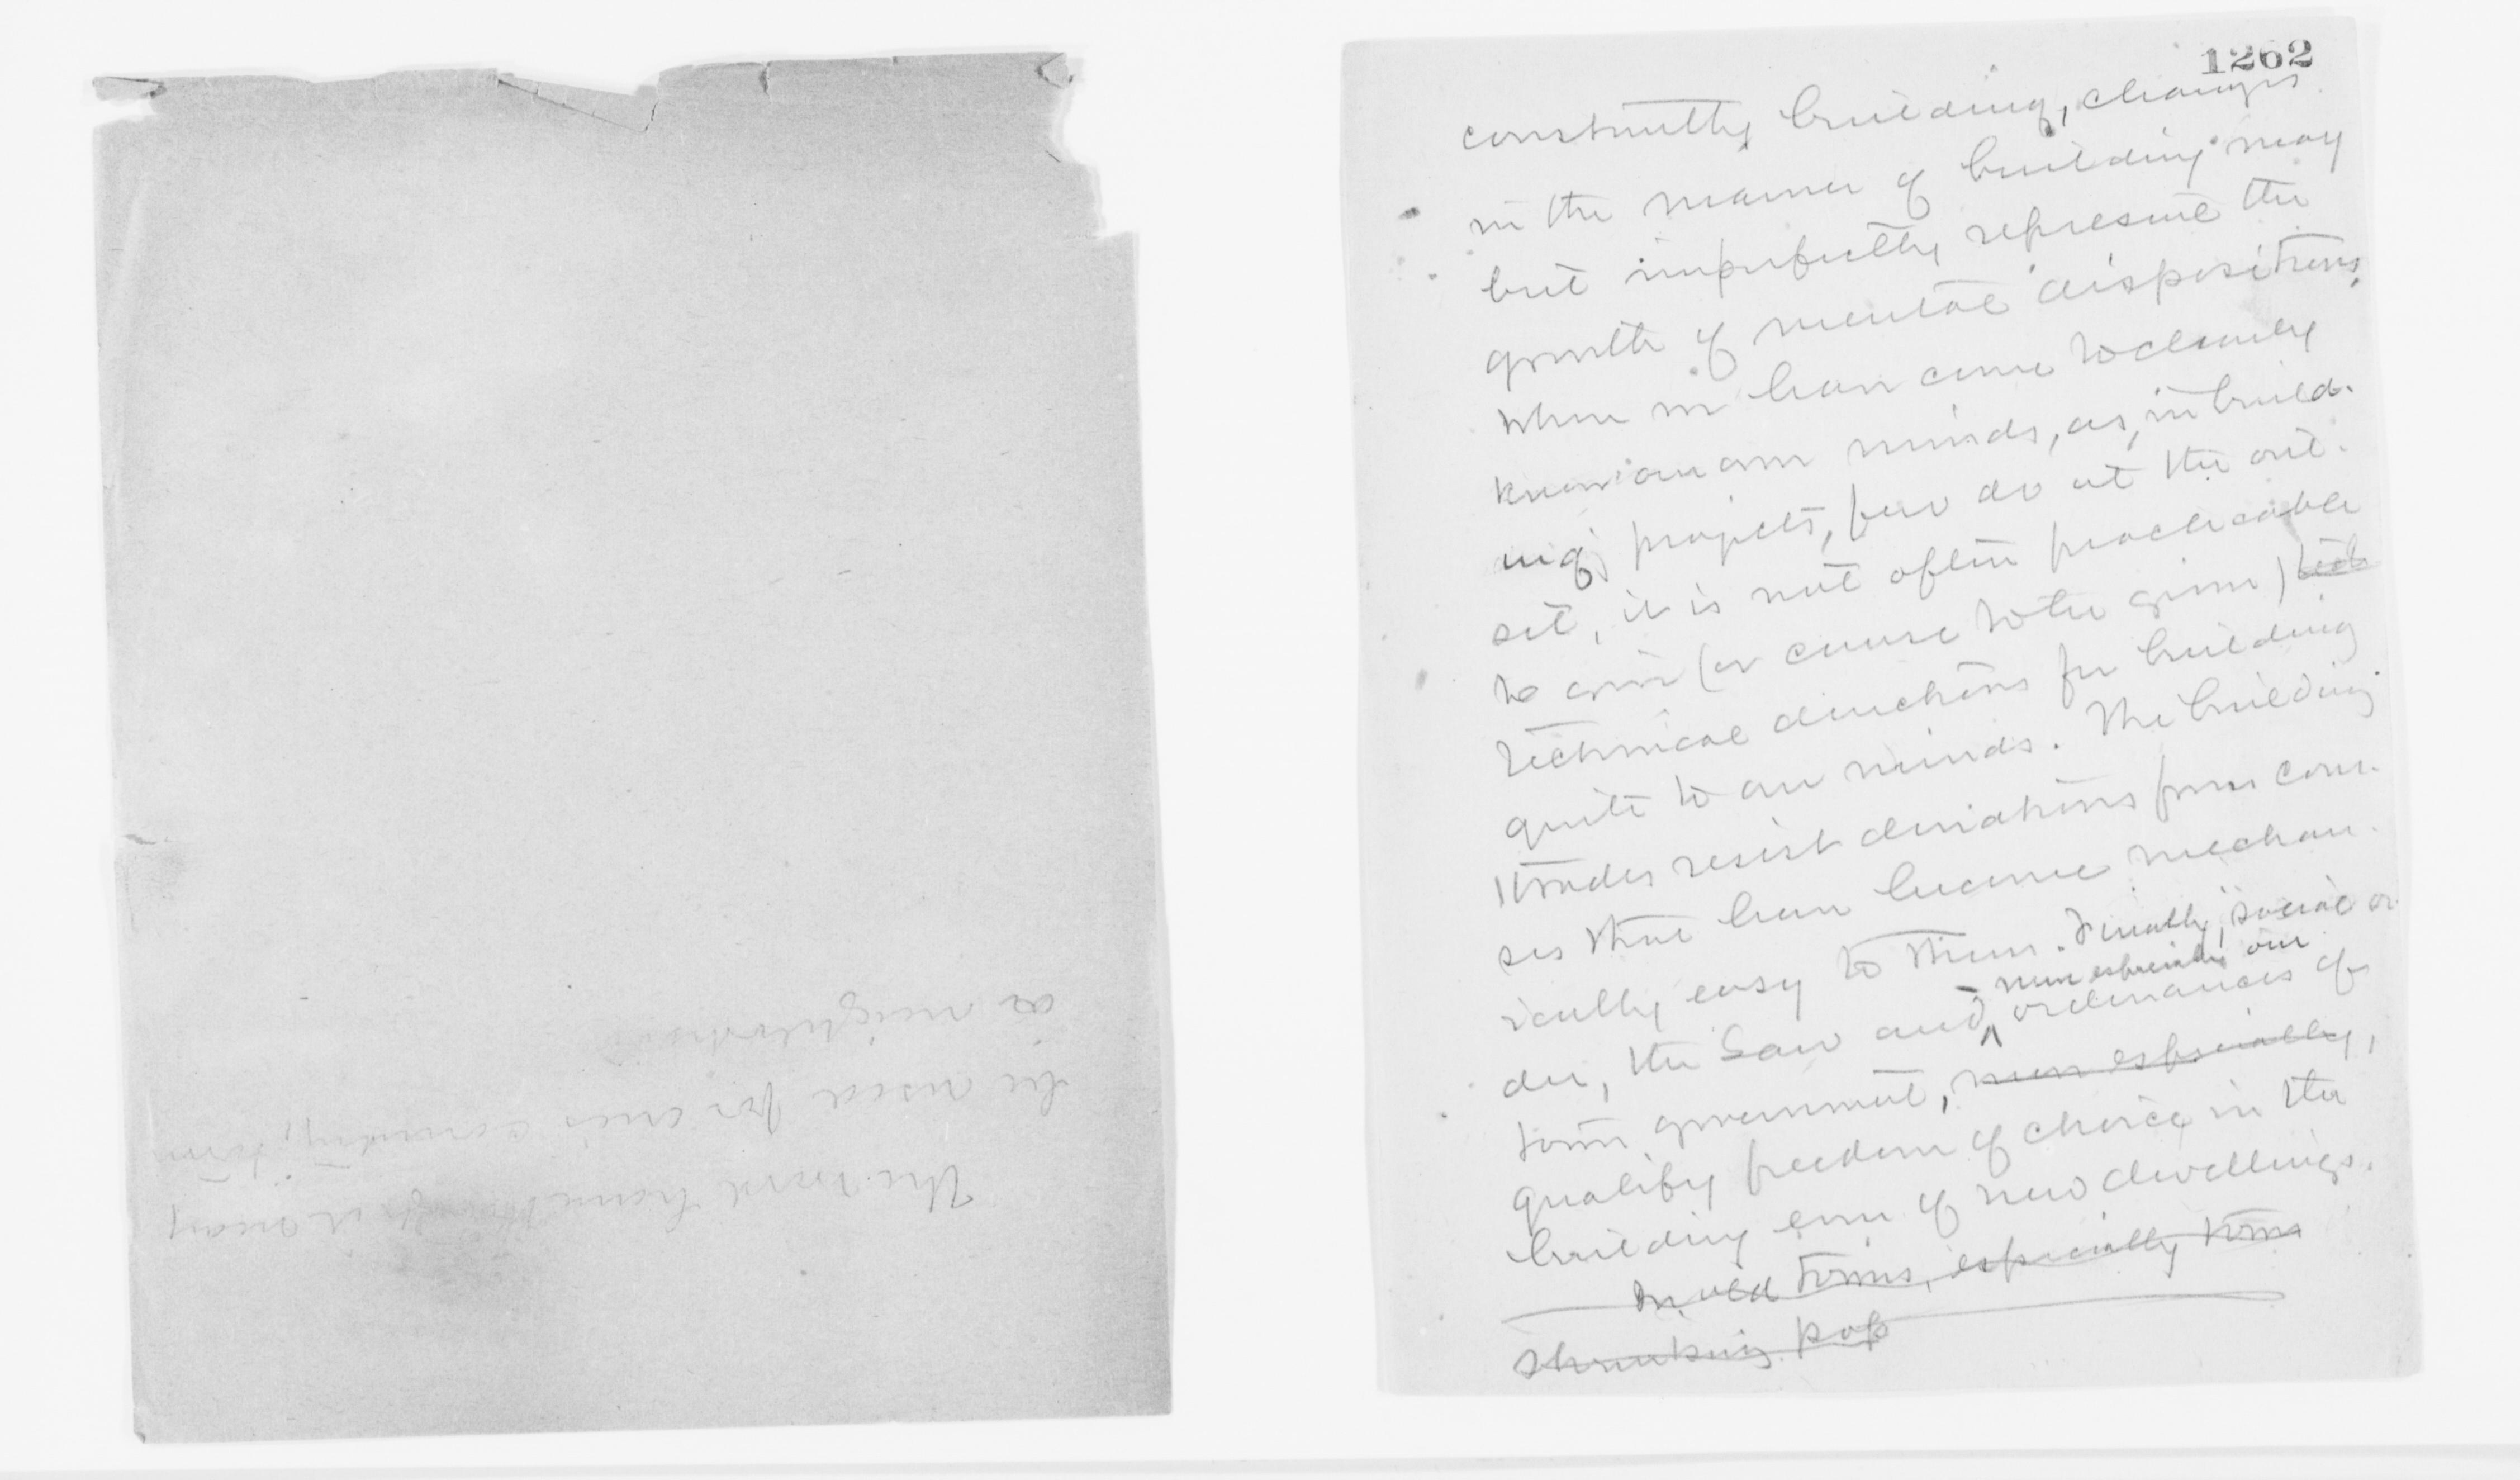 The word home though it may
be used for one's country, town
or neighborhood
1262
constantly building, changes
in the manner of building may
but imperfectly represent the
growth of mental dispositions.
When we have come to clearly
know our own minds, as, in build-
ing projects, few do at the out-
set, it is not often practicable
to give (or cause to be given)
technical directions for building
quite to our minds. The building
trades resist deviations from cour-
ses that have become mechan-
ically easy to them. Finally, social or-
more especially our
der, the Law and ordinances of
town government, more especially,
qualify freedom of choice in the
building even of new dwellings.
In old towns, especially towns
shrinking pop